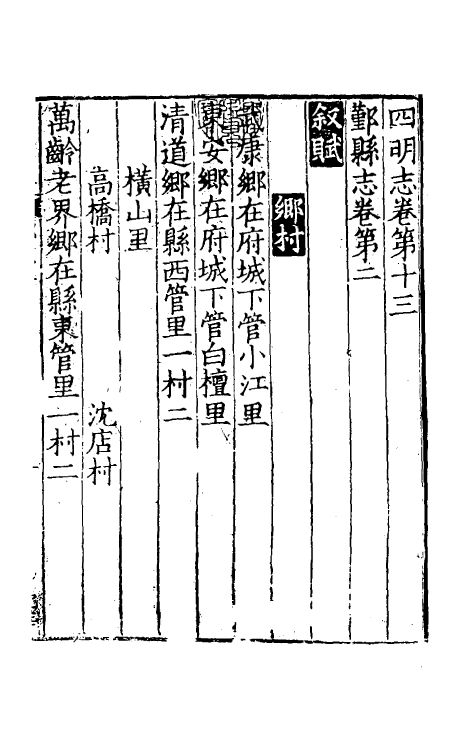 四明志卷第十三
鄞縣志卷第二
叙賦
鄉村
武康鄉在府城下管小江里
東安鄉在府城下管白檀里
清道鄉在縣西管里一村二
橫山里
高橋村　沈店村
萬齡老界鄉在縣東管里一村二